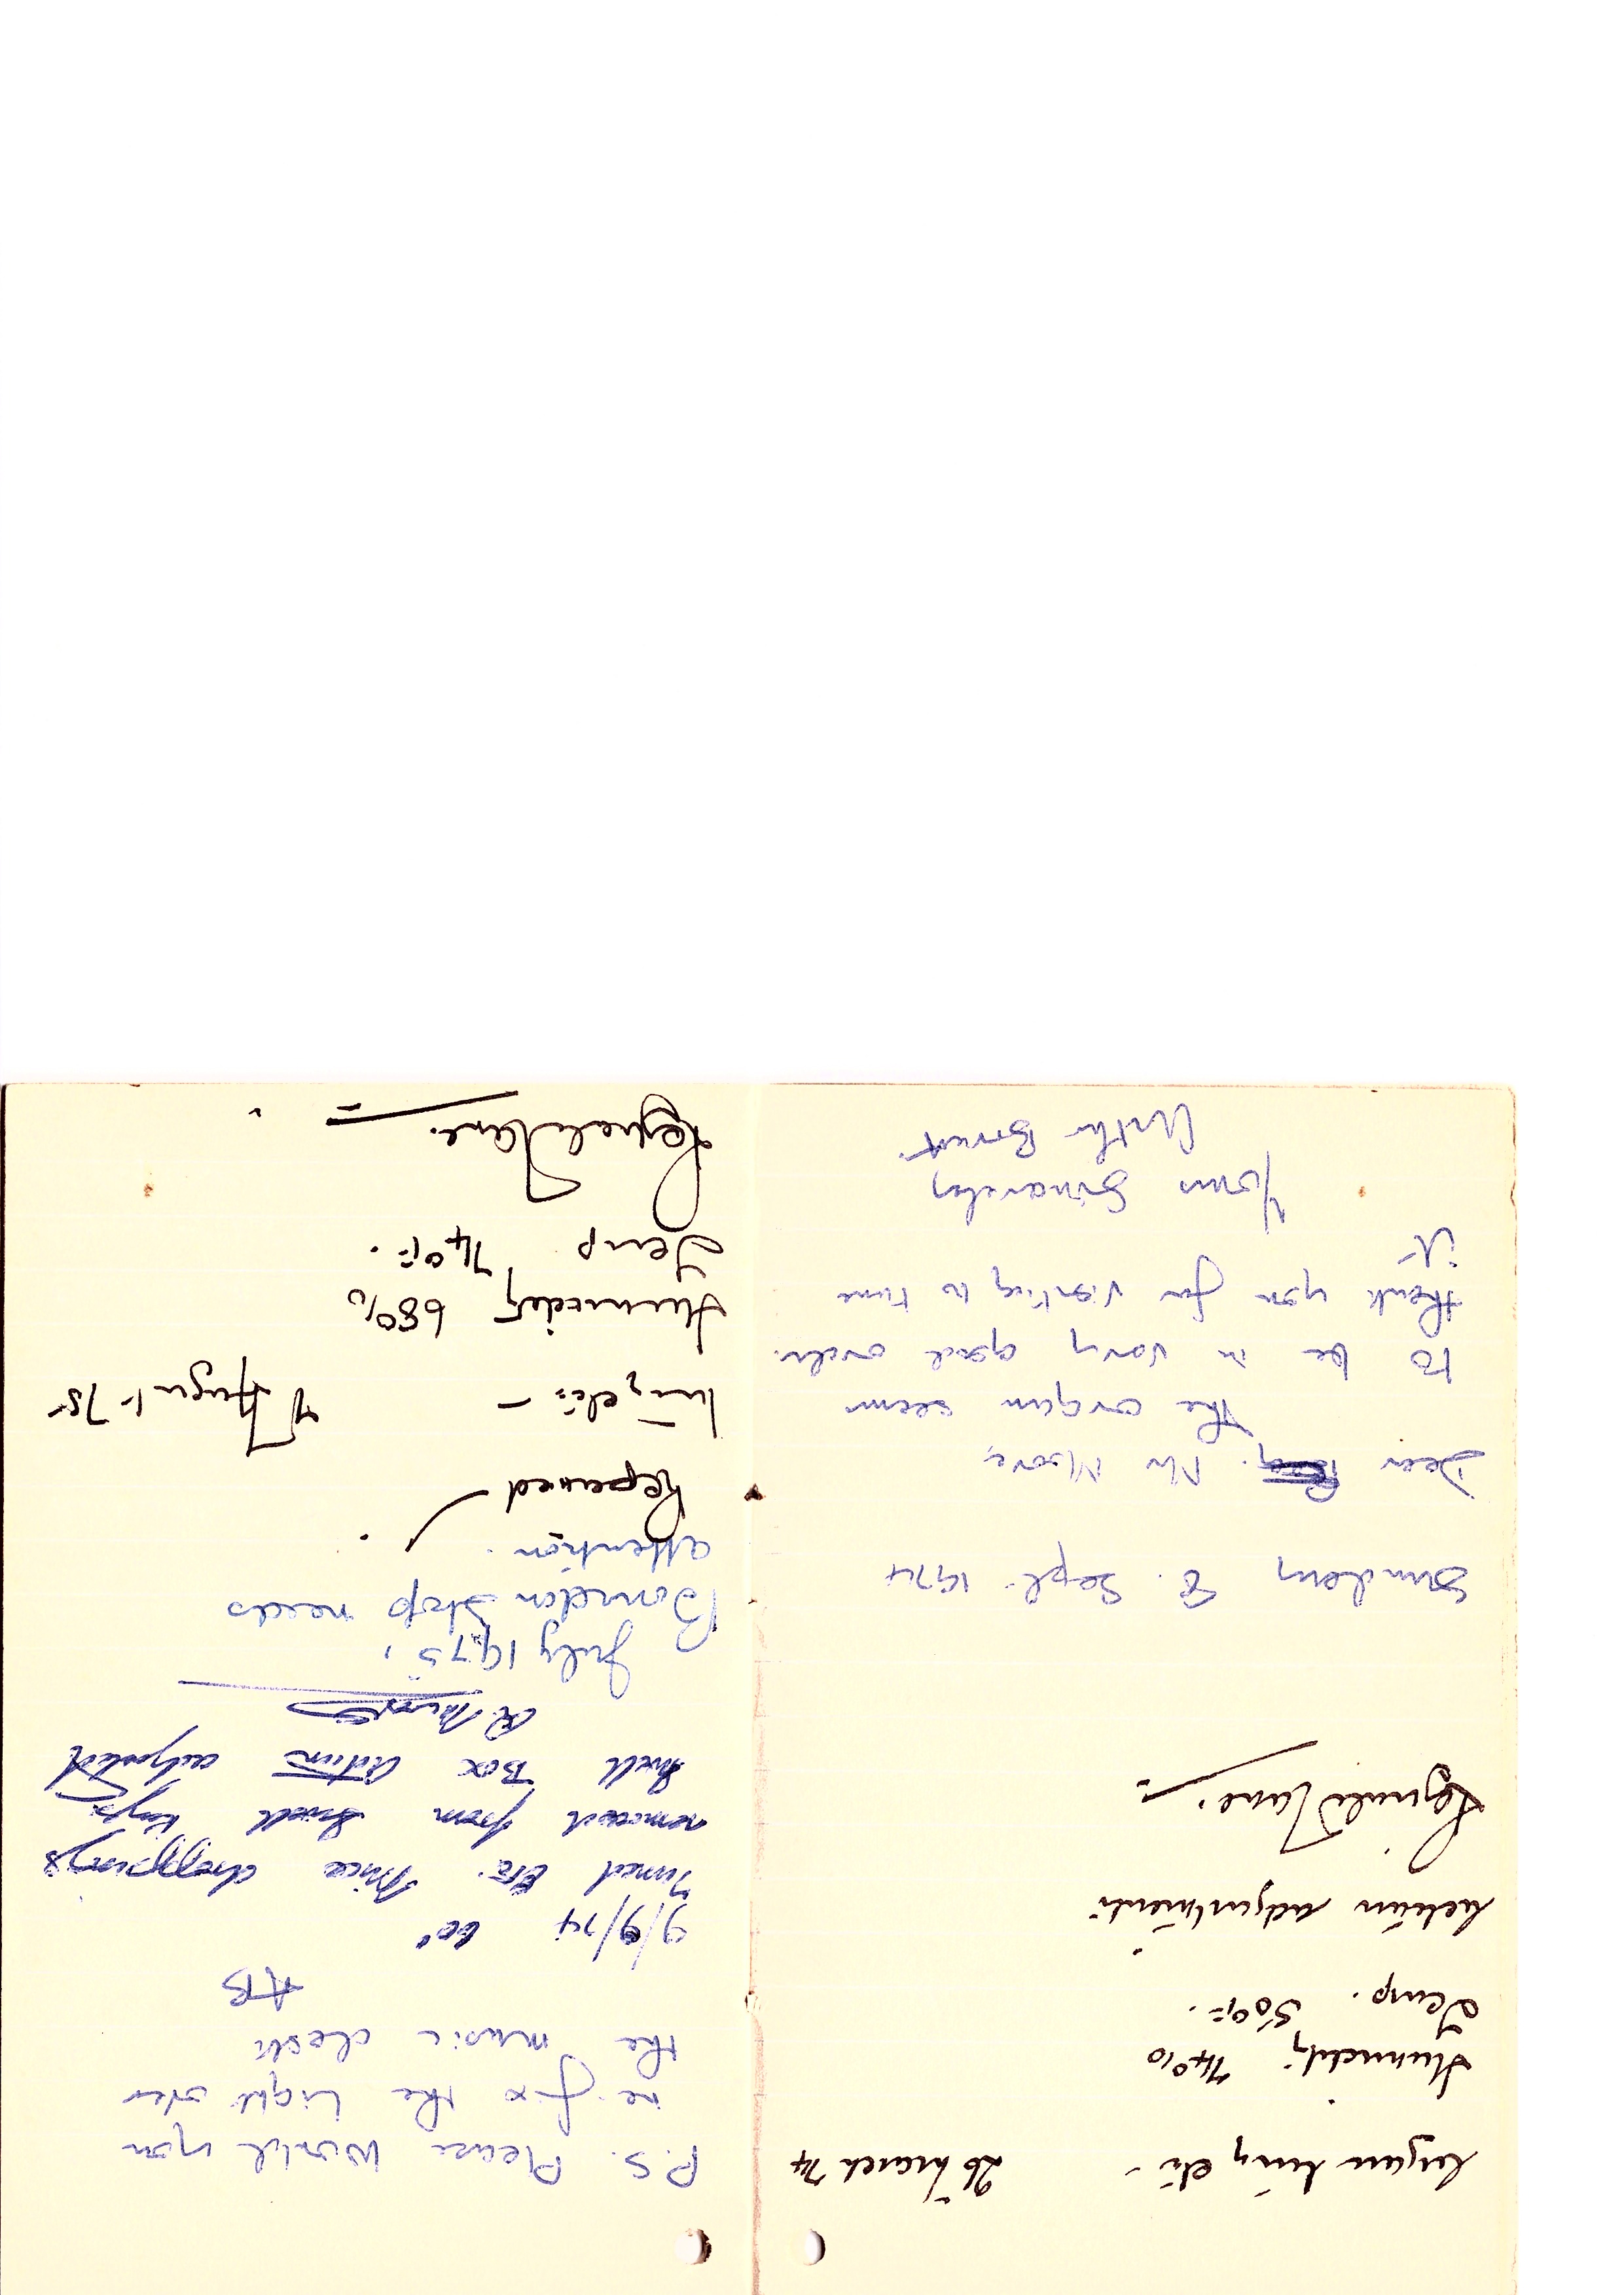 Organ tuning etc - 26 March 74
Humidity 74%
Temp. 50°F.
Action adjustments
Reginald Lane.
Sunday 8. Sept. 1974
Dear Mr Moore,
The organ seems
to be in very good order.
Thank you for visiting to tune
it
Yours Sincerely
Arthur
P.S. Please would you
re-fix the light over
the music desk
AB
9/9/74 60°
Tuned etc. Mice droppings
removed from Swell keys
Swell Box action adjusted
R. Moore
July 1975,
Bourdon stop needs
attention.
Repaired
Tuning etc: - 7 August 75
Humidity 68%
Temp 74°F.
Reginald Lane.